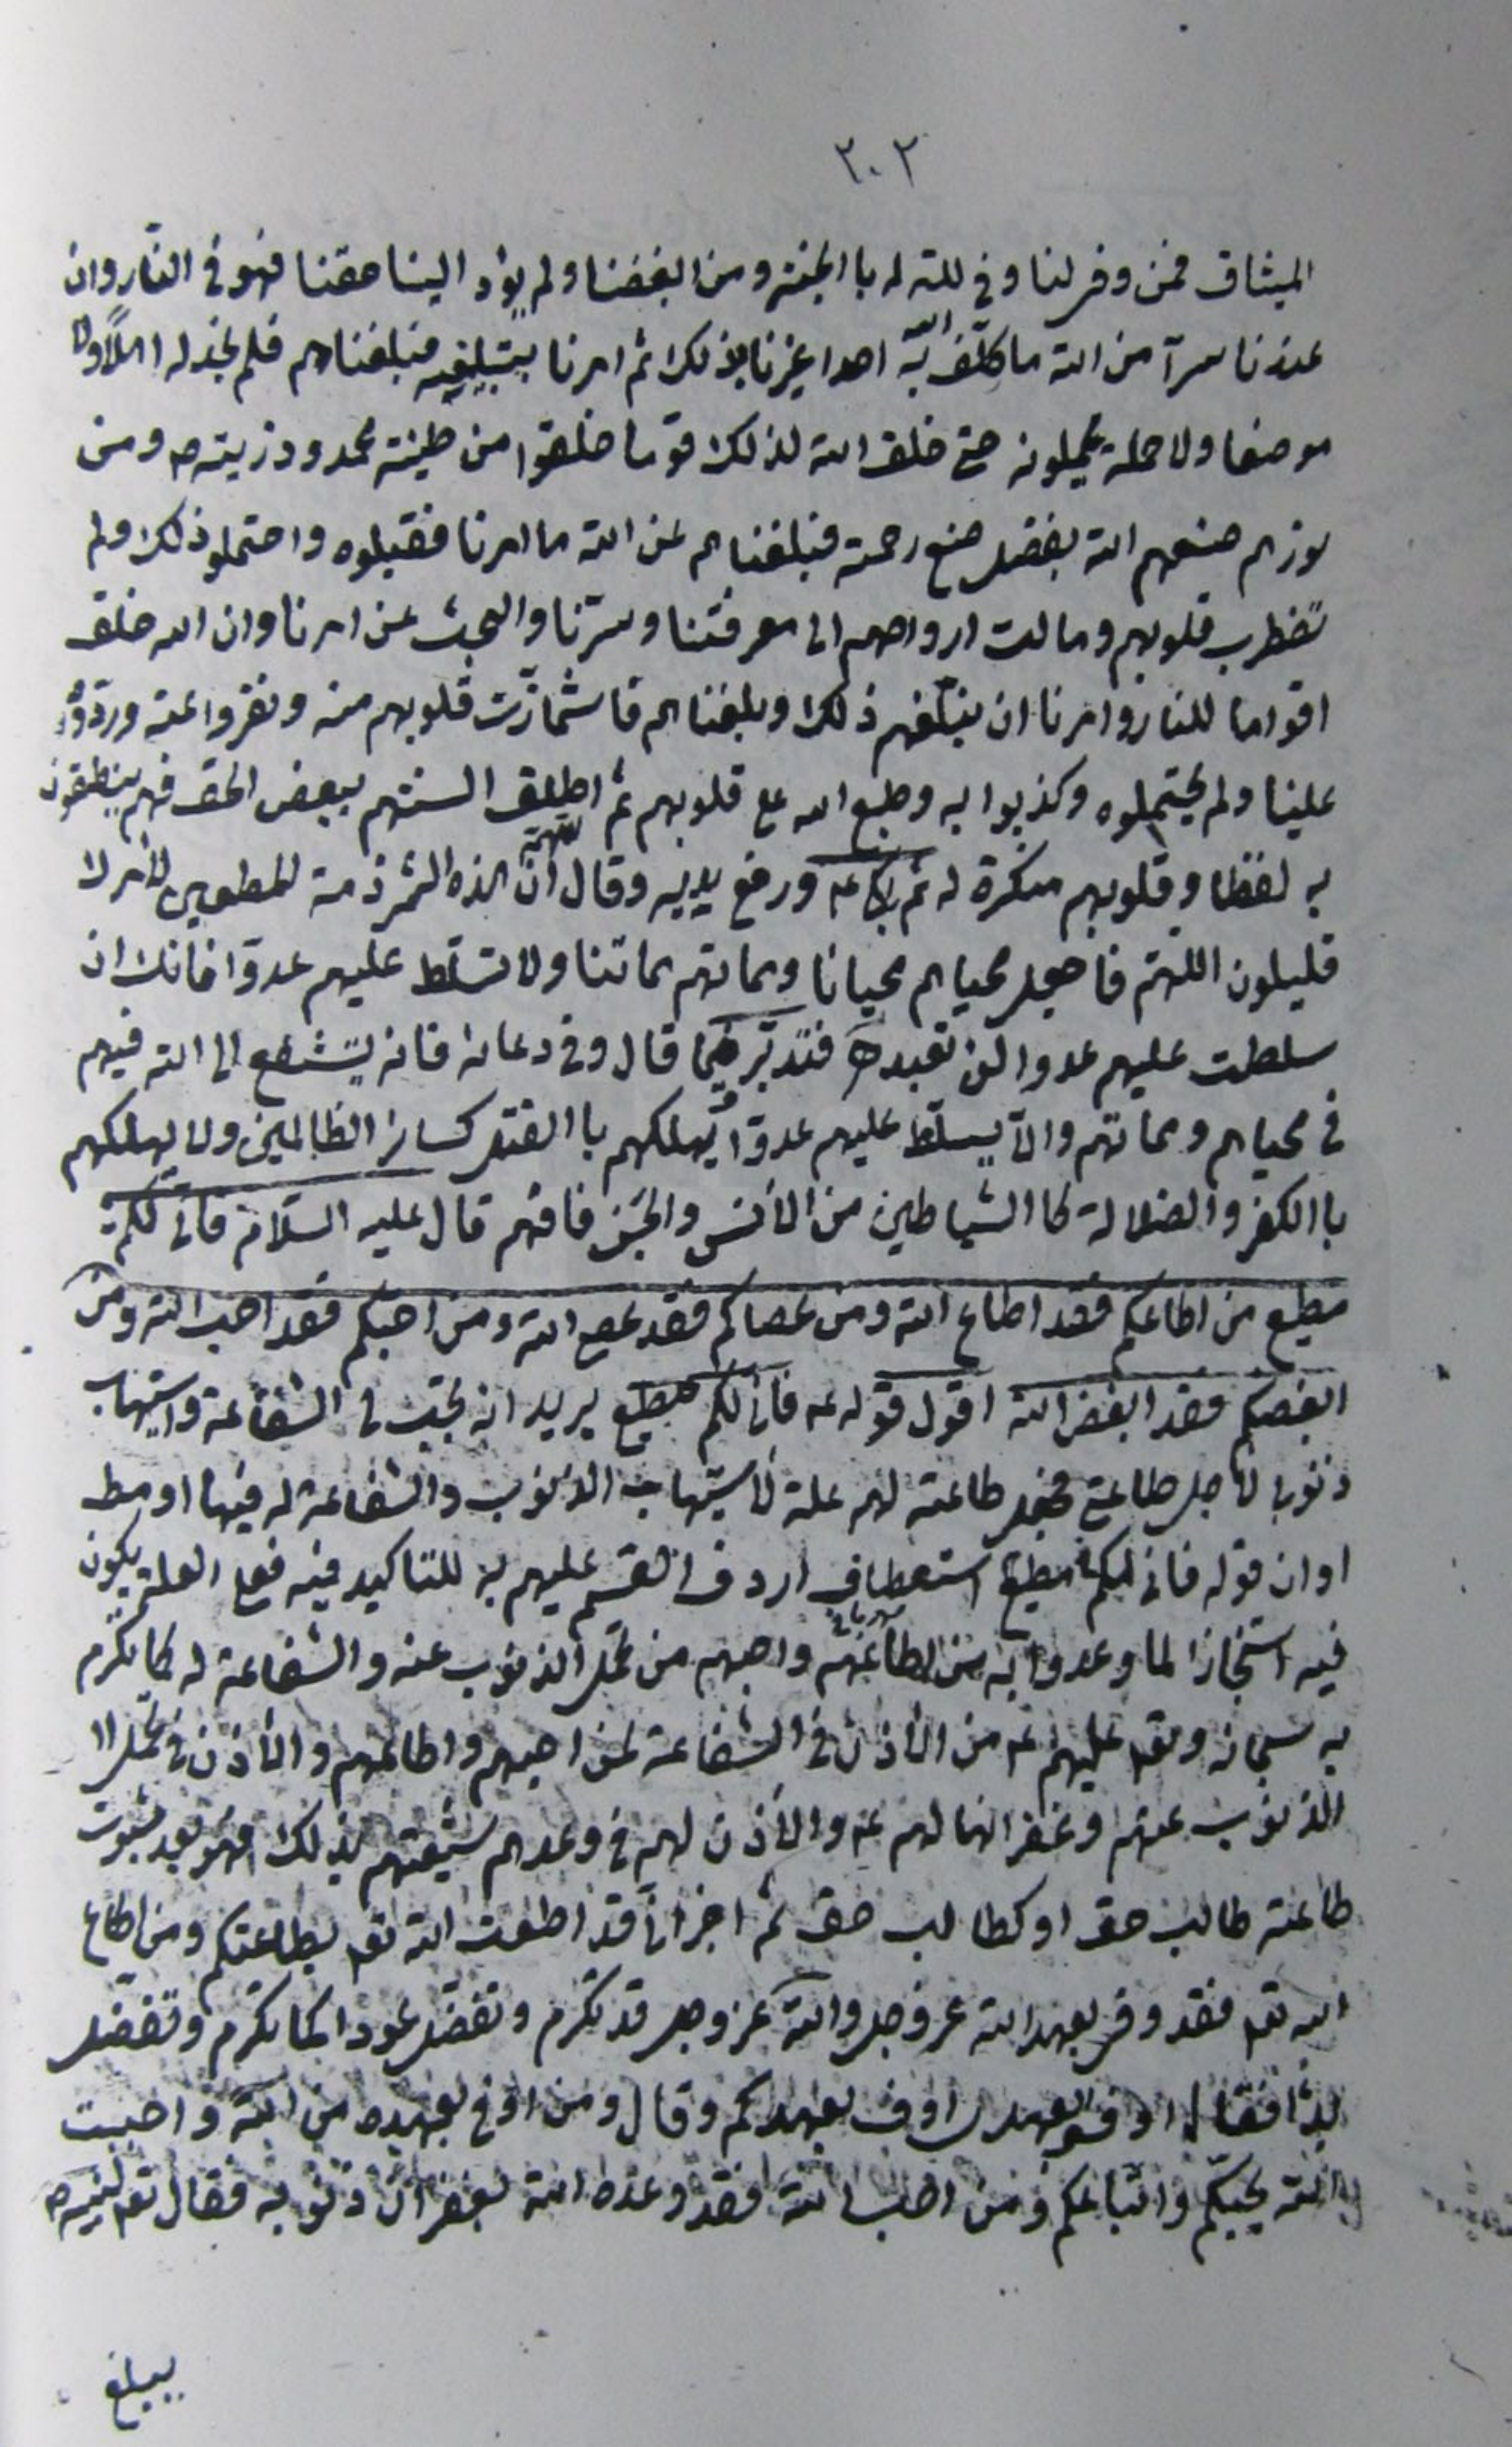 ٣٠٢
الميثاق فمن وفى لنا وفى الله له باالجنة ومن ابغضنا ولم يؤد الينا حقنا فهو فى النار وان
عندنا سرآ من الله ما كلّف الله به احدا غيرنا بذلك ثم امرنا بتبليغه فبلغناهم فلم نجد له اهلاً ولا
موضعا ولا حملة يحملونه حتى خلق الله لذلك قوما خلقوا من طينة محمد وذريته ص ومن
نورهم صنعهم الله بفضل صنع رحمته فبلغناهم عن الله ما امرنا فقبلوه واحتملو ذلك ولم
تضطرب قلوبهم ومالت ارواحهم الى معرفتنا وسرّنا والبحث عن امرنا وان الله خلق
اقواما للنار وامرنا ان نبلّغهم ذلك وبلغناهم فاشمأزّت قلوبهم منه ونفروا عنه وردّوه
علينا ولم يحتملوه وكذبوا به وطبع الله على قلوبهم ثم اطلق السنتهم ببعض الحق فهم ينطقون
به لفظا وقلوبهم منكرة له ثم بكا ع ورفع يديه وقال اللهمّ انّ هذه الشرذمة المطيعين لأمرك
قليلون اللهّم فاجعل محياهم محيانا ومماتهم مماتنا ولا تسلّط عليهم عدوّا فانك ان
سلطت عليهم عدوا لن تعبد ه فتدبّر فيما قال وفى دعائه فانه يشفع الى الله فيهم
فى محياهم ومماتهم والاّ يسلّط عليهم عدوّا يهلكهم باالقتل كسائر الظالمين ولا يهلكهم
باالكفر والضلالة كاالشياطين من الأنس والجن فافهم قال عليه السّلام فانى لكم
مطيع من اطاعكم فقد اطاع الله ومن عصاكم فقد عصى الله ومن احبّكم فقد احب الله ومن
ابغضكم فقد ابغض الله اقول قوله ع فانى لكم مطيع يريد انه يجب فى الشفاعة واستيهاب
ذنوبى لأجل طاعتى فجعل طاعته لهم علة لأستيهاب الذنوب والشفاعة له فيها او مط
او ان قوله فانى لكم مطيع استعطاف اردف القسم عليهم به للتاكيد فيه فعلى العلة يكون
فيه استنجازا لما وعدوا به من اطاعهم واحبهم من تحمل الذنوب عنه والشفاعة له كما تكرم
به سبحانه وتعا عليهم ع من الأذن فى الشفاعة لمن احبهم واطاعهم والأذن فى تحمل
الذنوب عنهم وغفرانها لهم ع والأذن لهم فى وعدهم شيعتهم بذلك فهو بعد ثبوت
طاعته طالب حق او كطالب حق ثم اخبر انّى قد اطعت الله تعا بطاعتكم ومن اطاع
الله تعا فقد وفى بعهد الله عز وجل والله عز وجل قد تكرم وتفضل عودا كما تكرم وتفضل
بدءا فقال اوفوا بعهدى اوف بعهدكم وقال ومن اوفى بعهده من الله واحببت
الله بحبّكم واتباعكم ومن احب الله فقد وعده الله بغفران ذنوبه فقال تعا لنبيه ص
يبلغ